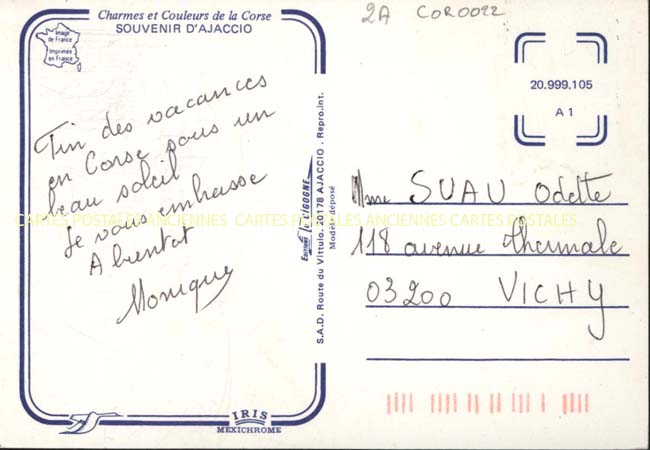 Charmes et Couleurs de la Corse
SOUVENIR D'AJACCIO
Image
de France
Imprimée
en France
2A COR0022
20.999.105
A 1
Fin des vacances
en Corse sous un
beau soleil
Je vous embrasse
A bientot
Monique
Editions de l'CIGOGNE
S.A.D. Route du Vittulo. 20178 AJACCIO . Repro.int.
Modèle déposé
Mme SUAU Odette
118 avenue Thermale
03200 VICHY
CARTES POSTALES ANCIENNES CARTES POSTALES ANCIENNES CARTES POSTALES ANCIENNES
IRIS
MEXICHROME